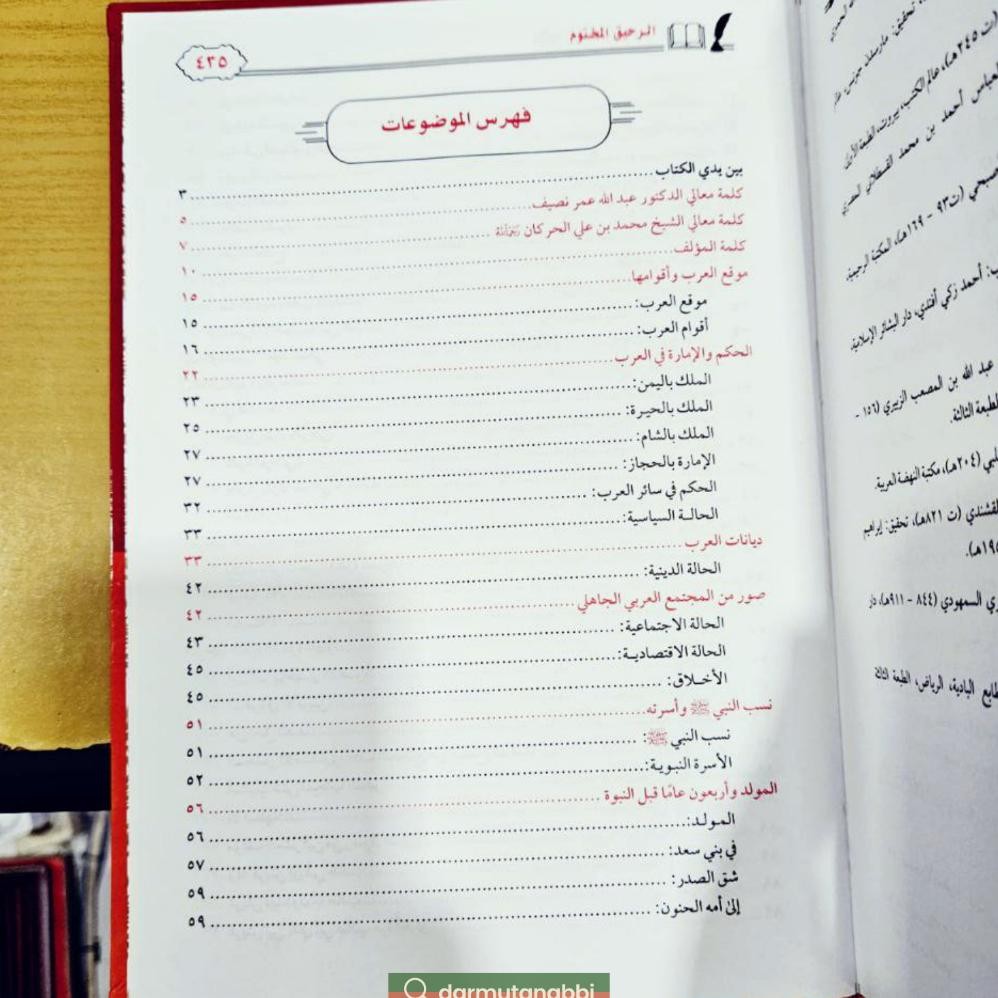 الرحيق المختوم
٤٣٥
فهرس الموضوعات
بين يدي الكتاب ٣
كلمة معالي الدكتور عبد الله عمر نصيف ٥
كلمة معالي الشيخ محمد بن علي الحركان رَحِمَهُ اللَّهُ ٧
كلمة المؤلف ١٠
موقع العرب وأقوامها ١٥
موقع العرب: ١٥
أقوام العرب: ١٦
الحكم والإمارة في العرب ٢٢
الملك باليمن: ٢٣
الملك بالحيرة: ٢٥
الملك بالشام: ٢٧
الإمارة بالحجاز: ٢٧
الحكم في سائر العرب: ٣٢
الحالة السياسية: ٣٣
ديانات العرب ٣٣
الحالة الدينية: ٤٢
صور من المجتمع العربي الجاهلي ٤٢
الحالة الاجتماعية: ٤٣
الحالة الاقتصادية: ٤٥
الأخلاق: ٤٥
نسب النبي ﷺ وأسرته ٥١
نسب النبي ﷺ: ٥١
الأسرة النبوية: ٥٢
المولد وأربعون عامًا قبل النبوة ٥٦
المولد: ٥٦
في بني سعد: ٥٧
شق الصدر: ٥٩
إلى أمه الحنون: ٥٩
(ت ٢٤٥هـ)، عالم الكتب، بيروت، الطبعة
العباس أحمد بن محمد القسطلاني المصري
صبحي (ت ٩٣ - ١٦٩هـ)، المكتبة الرحيمية.
أحمد زكي أفندي، دار البشائر الإسلامية.
عبد الله بن المصعب الزبيري (١٥٦ -
الطبعة الثالثة.
(٢٠٤هـ)، مكتبة النهضة العربية.
القلقشندي (ت ٨٢١هـ)، تحقيق: إبراهيم
السمهودي (٨٤٤ - ٩١١هـ)، دار
البادية، الرياض، الطبعة الثالثة
darmutanabbi